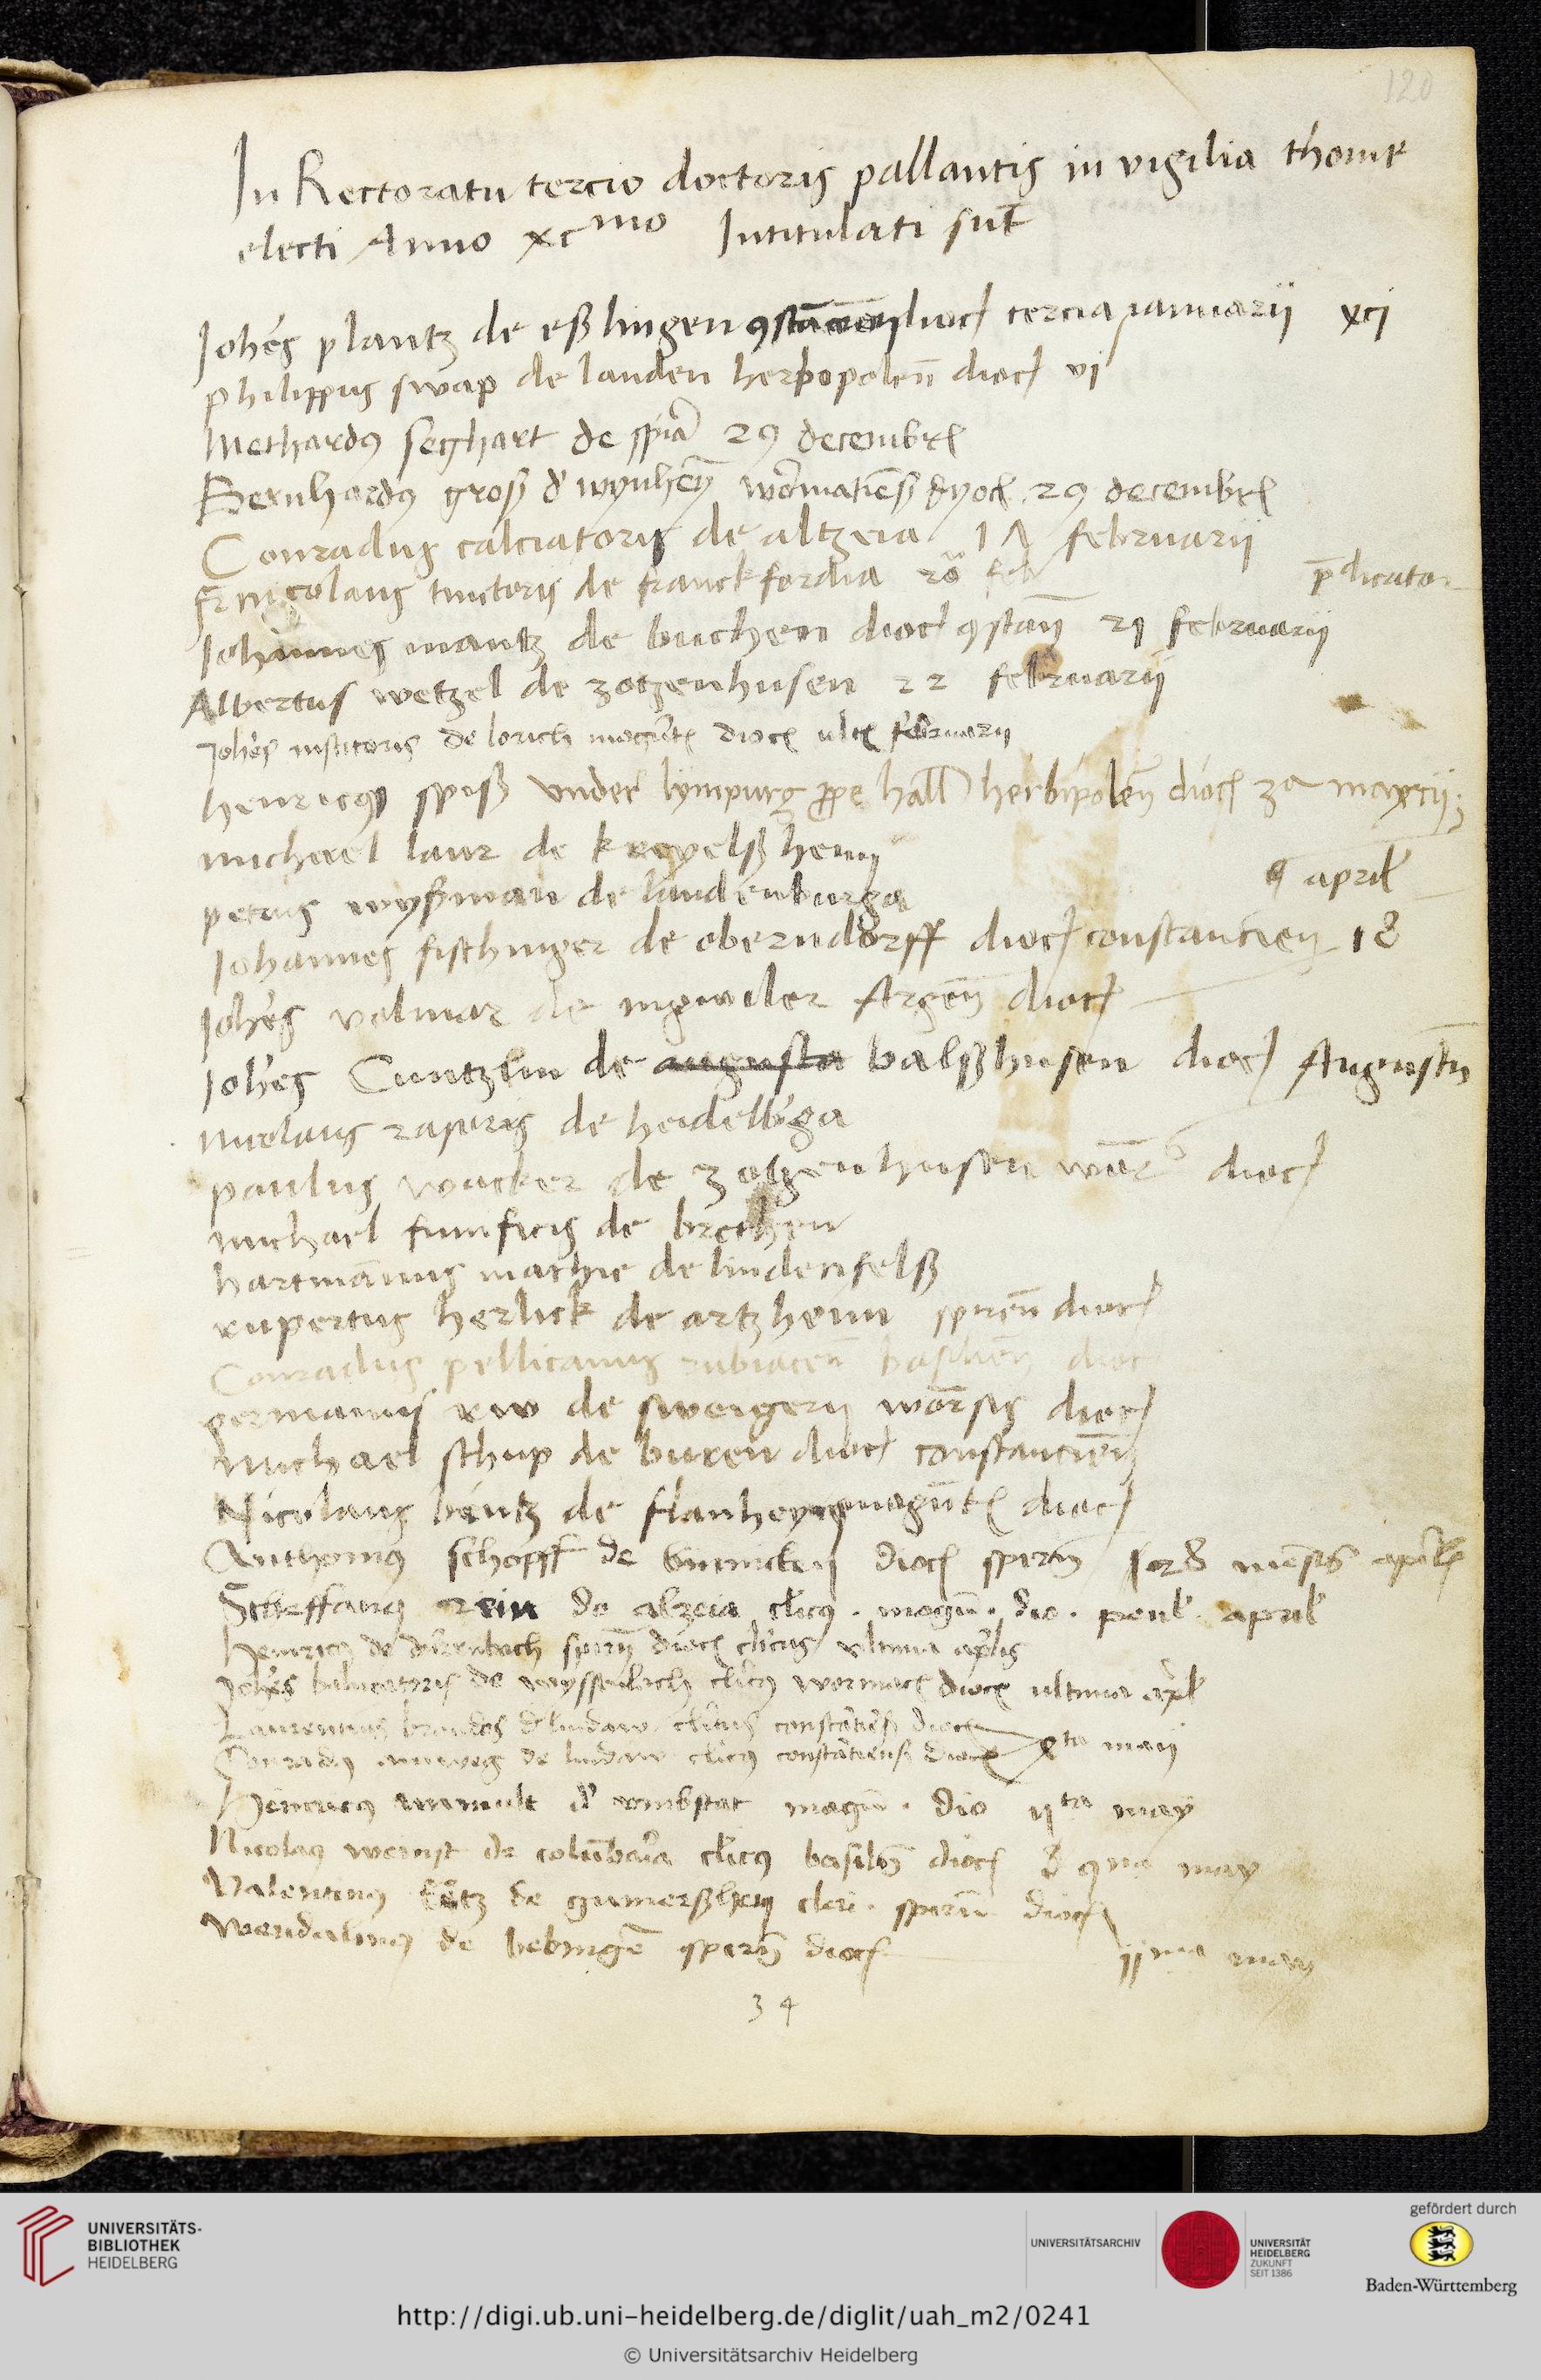 120
In Rectoratu tercio doctoris pallantis in vigilia thome
electi Anno xcmo Intitulati sūt
Johēs plantz de eßlingen 9stācieñ dioc tercia januarii xcj
philippus swap de lauden herbopoleñ dioc vi
Methardꝯ seghart de spiā 29 decembrꝭ
Bernhardꝯ groß d' wynheỹ wōrmatieñß dyoc 29 decembrꝭ
Conradus calciatoris de altzeia 1Λ februarii
fr nicolaus tinctoris de franckfordia 20 feb p̄dicator
Johannes mantz de buchen dioc 9stañ 21 februarii
Albertus wetzel de zotzenhusen 22 februarii
Johēs institoris de lorich magūtꝭ diocꝭ ultꝭ februarii
henricꝯ spiß vnder lympurg ꝓpe hall herbipoleñ diocꝭ 3a marcii
michael laur de kreyelßheim
petrus wyßman de laudenburga 9 april
Johannes fischinger de oberndorff dioc constancieñ 18
Johēs volmar de ingwiler Argeñ dioc
Johēs Cuntzlin de augusta balßhusen dioc Augustñ
nicolaus rasoris de heidelbꝰga
paulus wacker de zotzenhusen wōr dioc
michael funificis de brethen
hartmānus mathie de lindenfelß
rupertus herlick de artzheim spireñ dioc
Conradus pellicanus rubiaceñ basilieñ dioc
germanus rw de sweigern wōrsis dioc
Michael schup de buren dioc constancieñ
Nicolaus bentz de flanheym magūtꝭ dioc
Anthoniꝯ schöpff de diocꝭ spireñ mēsis aprilꝭ
Steffanꝯ rein de alzeia cl'icꝯ . magūn . dio . penl' april'
Heinricꝯ de dūrenbach spireñ diocꝭ cl'icus ultima ap'lis
Johēs balneatoris de wyssenloch cl'icꝯ wormacꝭ diocꝭ ultima apl'
Laurentius brandes d' lindaw cl'icus constātieñß diocꝭ
Conradꝯ de lindaw cl'icꝯ constātienß diocꝭ xta maij
Heinricꝯ d' ombstat magūn . dio ijta may
Nicolaꝯ wernst de colūbaria cl'icꝯ basileñ diocꝭ may
Valentinꝯ götz de gumerßhem cleri . spireñ diocꝭ
Wendalinꝯ de hebingē spireñ diocꝭ ijma may
34
UNIVERSITÄTS-
BIBLIOTHEK
HEIDELBERG
UNIVERSITÄTSARCHIV
UNIVERSITÄT
HEIDELBERG
ZUKUNFT
SEIT 1386
gefördert durch
Baden-Württemberg
http://digi.ub.uni-heidelberg.de/diglit/uah_m2/0241
© Universitätsarchiv Heidelberg